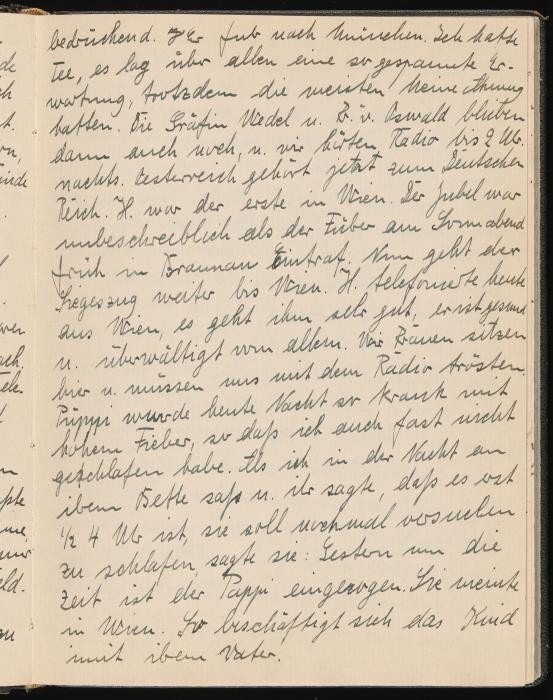 bedrückend. Er fuhr nach München. Ich hatte
Tee, es lag über allen eine so gespannte Er-
wartung, trotzdem die meisten keine Ahnung
hatten. Die Gräfin Wedel u. B. v. Oswald blieben
dann auch noch, u. wir hörten Radio bis 2 Uhr.
nachts. Oesterreich gehört jetzt zum Deutschen
Reich. H. war der erste in Wien. Der Jubel war
unbeschreiblich als der Füher am Sonnabend
früh in Braunau eintraf. Nun geht der
Siegeszug weiter bis Wien. H. telefonierte heute
aus Wien, es geht ihm sehr gut, er ist gesund
u. überwältigt vom allem. Wir Frauen sitzen
hier u. müssen uns mit dem Radio trösten.
Püppi wurde heute Nacht so krank mit
hohem Fieber, so daß ich auch fast nicht
geschlafen habe. Als ich in der Nacht an
ihrem Bette saß u. ihr sagte, daß es erst
½ 4 Uhr ist, sie soll nochmal versuchen
zu schlafen, sagte sie: Gestern um die
Zeit ist der Pappi eingezogen. Sie meinte
in Wien. So beschäftigt sich das Kind
mit ihrem Vater.